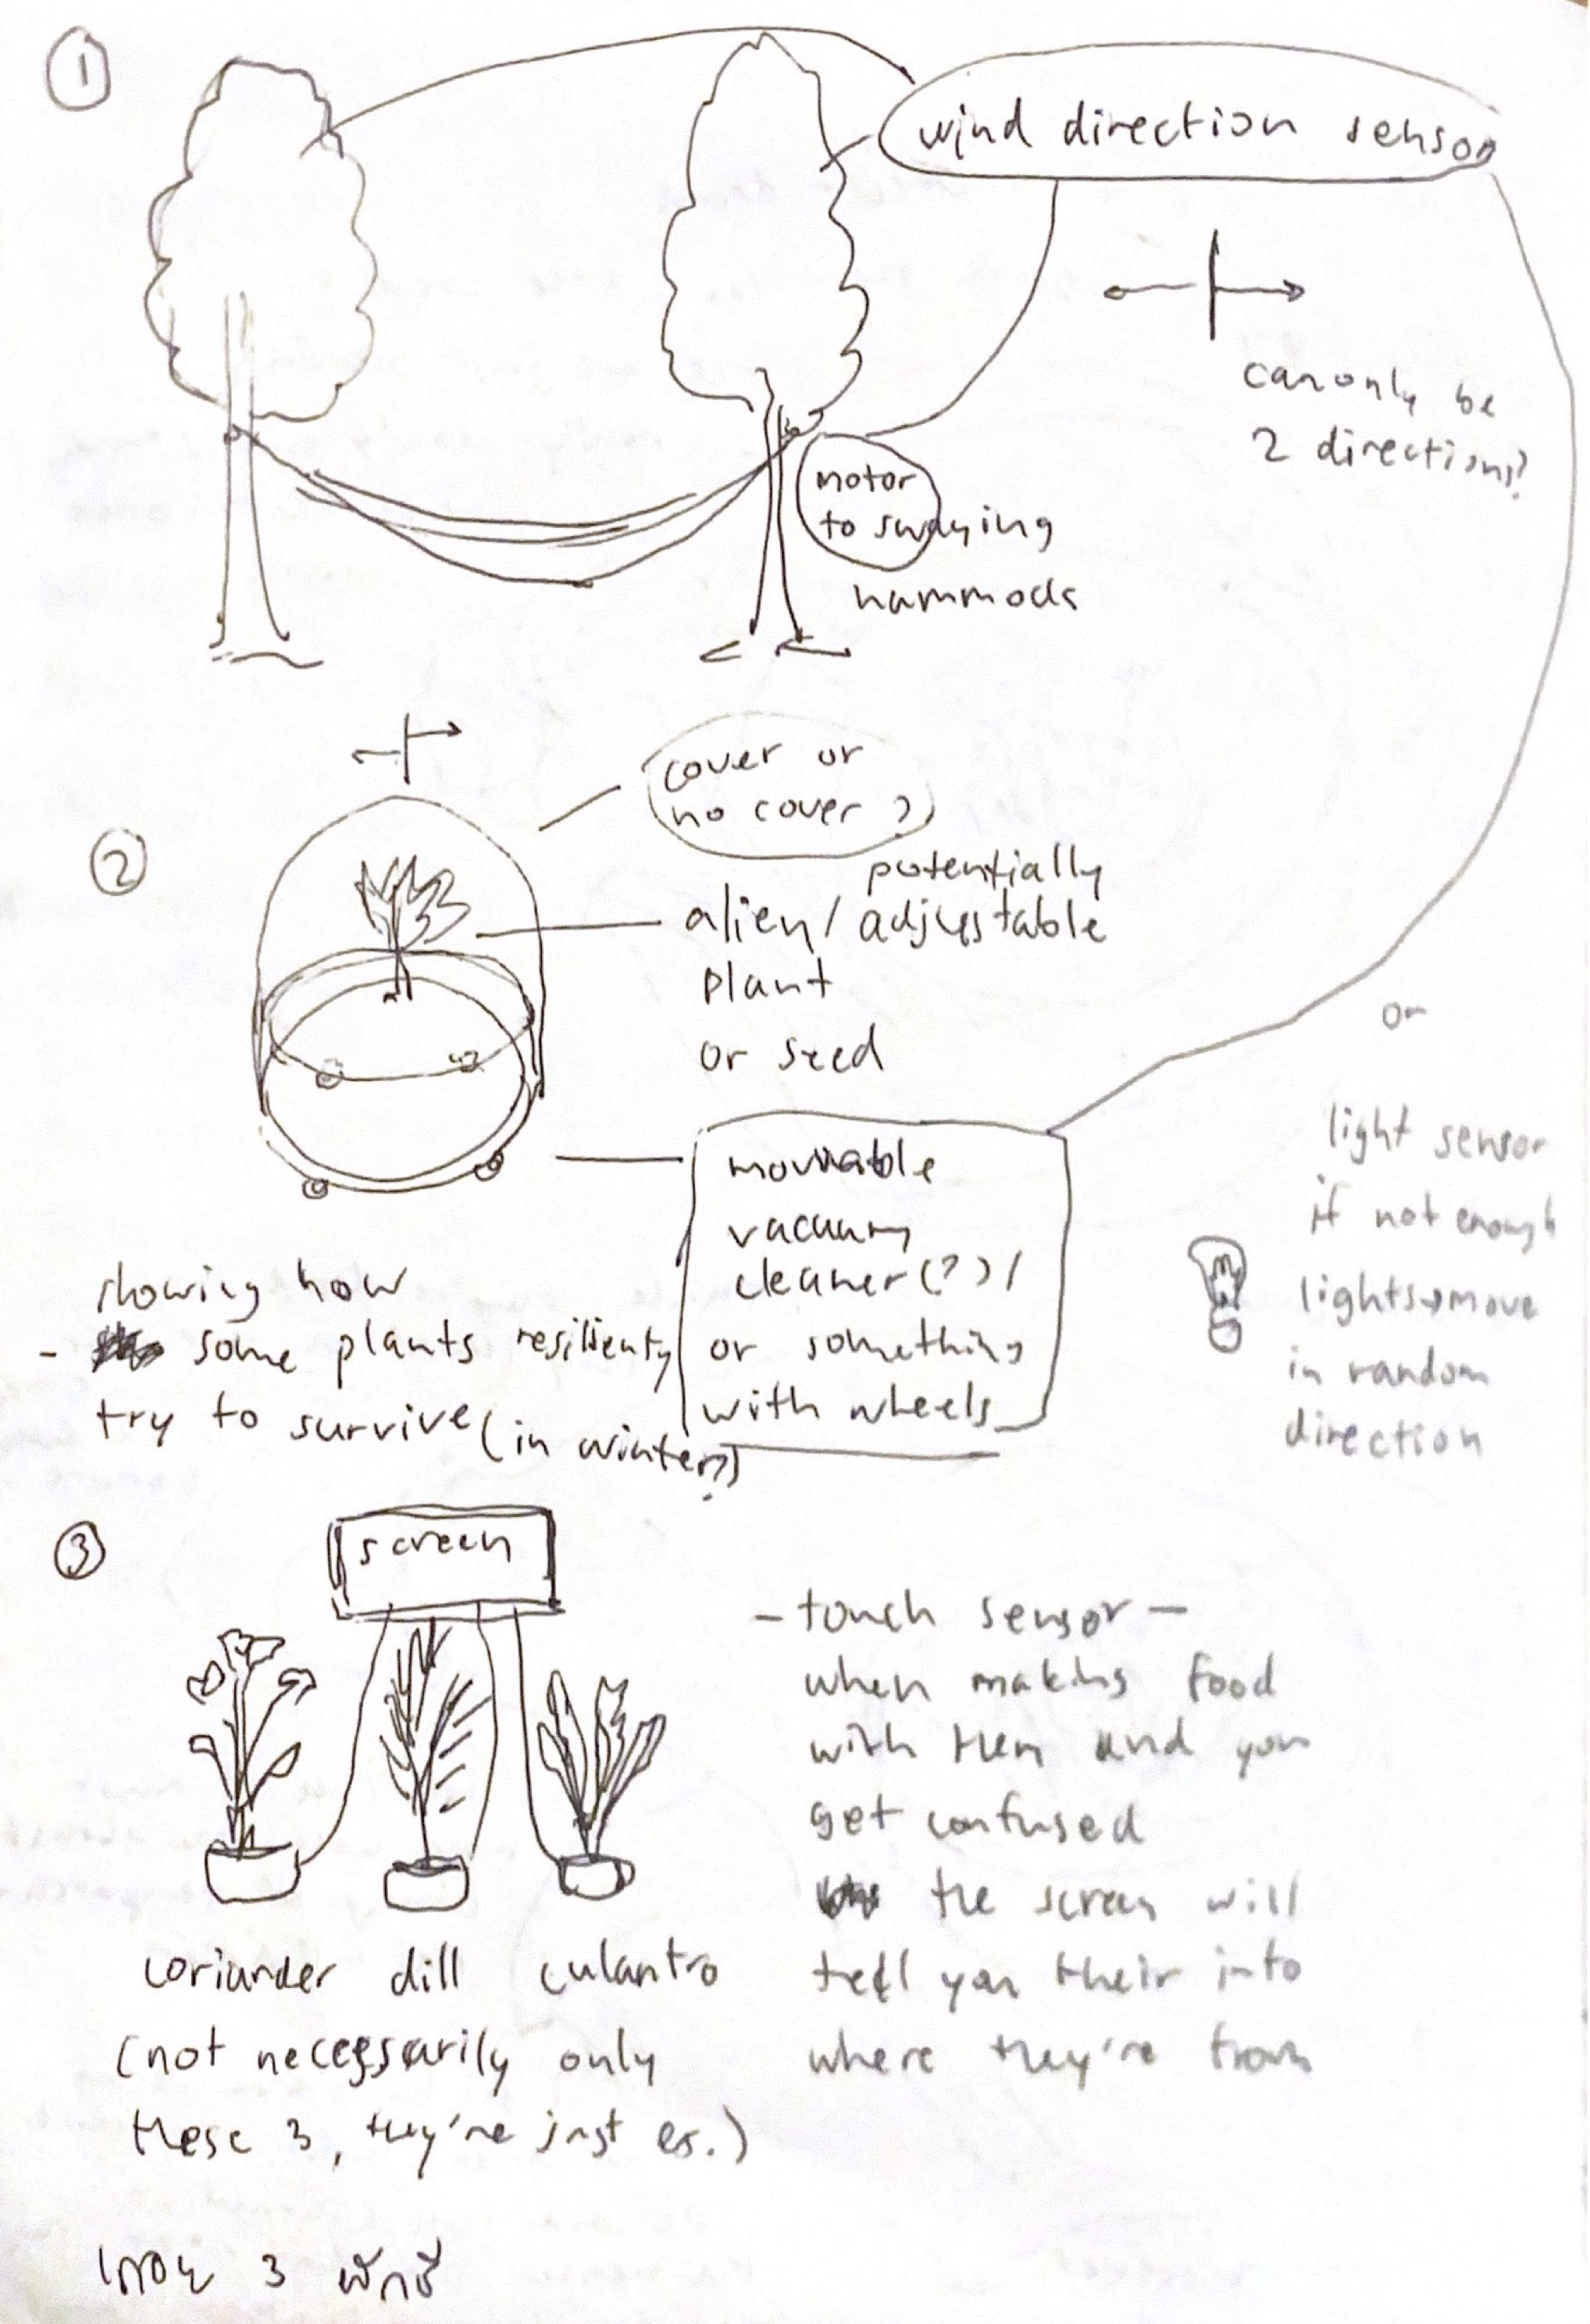 1
wind direction sensor
can only be
2 directions?
motor
to swaying
hammocks
2
cover or
no cover ?
potentially
alien / adjustable
plant
or seed
moviable
vacuum
cleaner(?) /
or something
with wheels
or
light sensor
if not enough
lights → move
in random
direction
showing how
- some plants resiliently
try to survive (in winter?)
3
screen
coriander dill culantro
(not necessarily only
these 3, they're just ex.)
- touch sensor -
when making food
with them and you
get confused
the screen will
tell you their info
where they're from
3 ผักชี